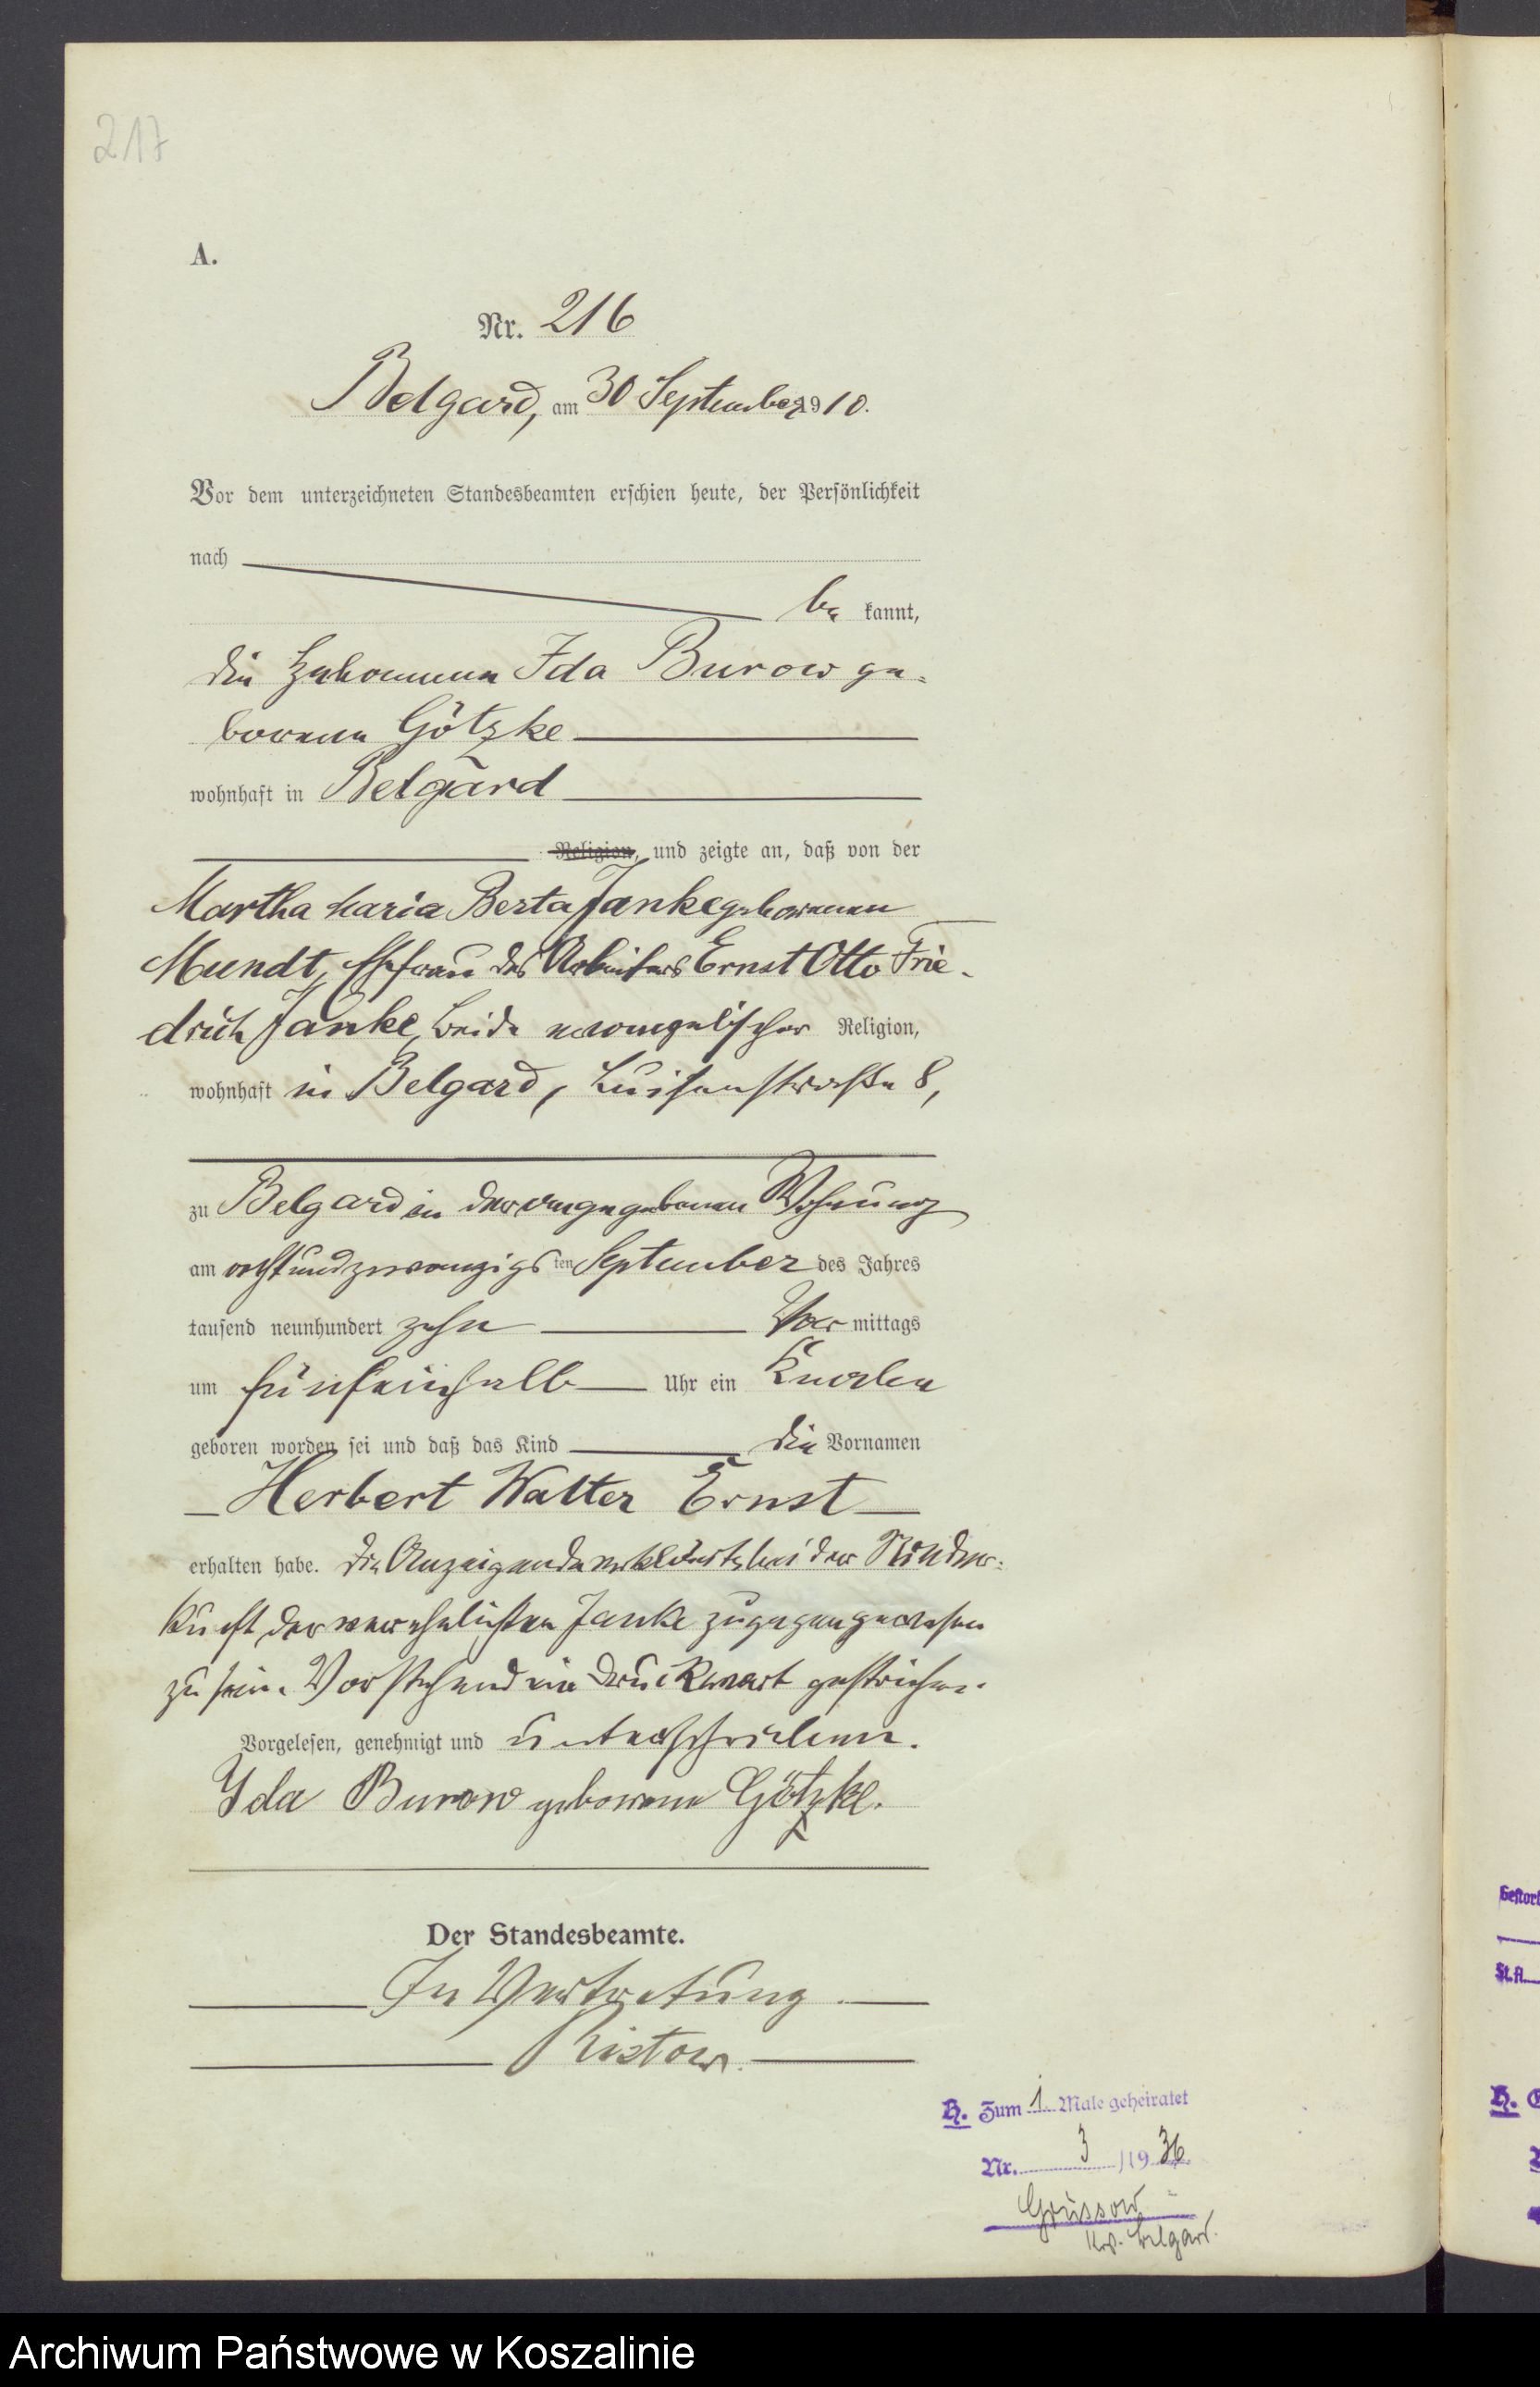 217
A.
Nr. 216
Belgard, am 30 September 1910.
Vor dem unterzeichneten Standesbeamten erschien heute, der Persönlichkeit
nach
be kannt,
die Hebamme Ida Burow ge-
borene Götzke
wohnhaft in Belgard
Religion, und zeigte an, daß von der
Martha Maria Berta Janke geborenen
Mundt, Ehefrau des Arbeiters Ernst Otto Frie-
drich Janke, beide evangelischer Religion,
wohnhaft in Belgard, Luisenstraße 8,
zu Belgard in der angegebenen Wohnung
am achtundzwanzigs ten September des Jahres
tausend neunhundert zehn Vor mittags
um fünfeinhalb Uhr ein Knabe
geboren worden sei und daß das Kind die Vornamen
Herbert Walter Ernst
erhalten habe. Die Anzeigende erklärte, bei der Nieder-
kunft der verehelichten Janke zugegen gewesen
zu sein. Vorstehend ein Druckwort gestrichen.
Vorgelesen, genehmigt und unterschrieben.
Ida Burow geborene Götzke.
Der Standesbeamte.
In Vertretung.
Ristow.
H. Zum 1. Male geheiratet
Nr. 3 /1936.
Grüssow
Krs. Belgard.
Gestorb
St.A.
H.
Archiwum Państwowe w Koszalinie